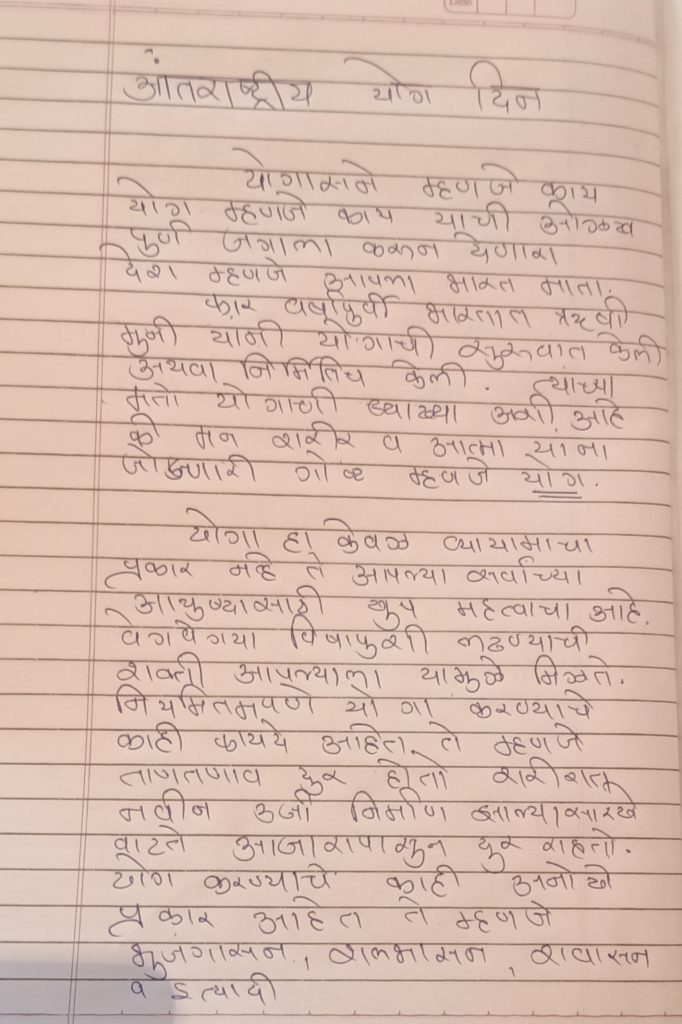 आंतरराष्ट्रीय योग दिन
योगासने म्हणजे काय
योग म्हणजे काय याची ओळख
पुर्ण जगाला करून देणारा
देश म्हणजे आपला भारत माता.
फार वर्षापुर्वी भारतात ऋषी
मुनी यानी योगाची सुरुवात केली
अथवा निर्मितिच केली. त्याच्या
मते योगाची व्याख्या अशी आहे
की मन शरीर व आत्मा याना
जोडणारी गोष्ट म्हणजे योग.
योगा हा केवळ व्यायामाचा
प्रकार नव्हे ते आपल्या सर्वाच्या
आयुष्यासाठी खुप महत्वाचा आहे.
वेगवेगया विषाणुशी लढण्याची
शक्ती आपल्याला यामुळे मिळते.
नियमितमपणे योगा करण्याचे
काही फायदे आहेत ते म्हणजे
ताणतणाव दुर होतो शरीरात
नवीन उर्जा निर्माण झाल्यासारखे
वाटते आजारापासुन दुर राहतो.
योग करण्याचे काही अनोखे
प्रकार आहेत ते म्हणजे
भुजगासन, शलभासन, शवासन
व इत्यादी